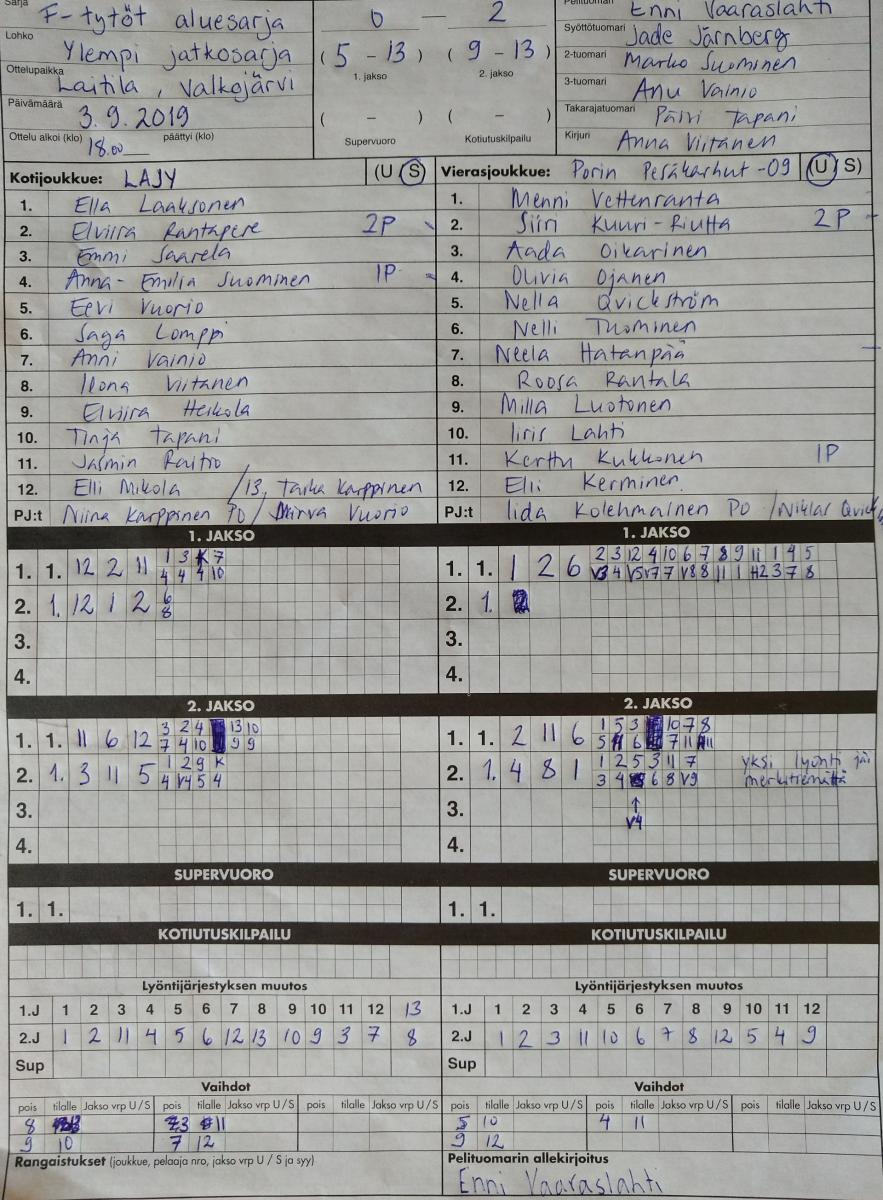 Sarja F-tytöt aluesarja
Lohko Ylempi jatkosarja
Ottelupaikka Laitila, Valkojärvi
Päivämäärä 3.9.2019
Ottelu alkoi (klo) 18.00 päättyi (klo)
0 — 2
(5 - 13) (9 - 13)
1. jakso 2. jakso
( - ) ( - )
Supervuoro Kotiutuskilpailu
Pelituomari Enni Vaaraslahti
Syöttötuomari Jade Järnberg
2-tuomari Marko Suominen
3-tuomari Anu Vainio
Takarajatuomari Päivi Tapani
Kirjuri Anna Viitanen
Kotijoukkue: LAJY (U S)
1. Ella Laaksonen
2. Elviira Rantapere 2P
3. Emmi Saarela
4. Anna-Emilia Suominen 1P
5. Eevi Vuorio
6. Saga Lomppi
7. Anni Vainio
8. Ilona Viitanen
9. Elviira Heikola
10. Tinja Tapani
11. Jasmin Raitio
12. Elli Mikola /13. Taika Karppinen
PJ:t Niina Karppinen PO / Minva Vuorio
Vierasjoukkue: Porin Pesäkarhut -09 (U S)
1. Menni Vettenranta
2. Siiri Kuuri-Riutta 2P
3. Aada Oikarinen
4. Olivia Ojanen
5. Nella Qvickström
6. Nelli Tuominen
7. Neela Hatanpää
8. Roosa Rantala
9. Milla Luotonen
10. Iiris Lahti
11. Kerttu Kukkonen 1P
12. Elli Kerminen
PJ:t Iida Kolehmainen PO / Niklas Qvick
1. JAKSO
1. 1. 12 2 11 1 3 K 7
4 4 4 10
2. 1. 12 1 2 6
8
3.
4.
1. JAKSO
1. 1. 1 2 6 2 3 12 4 10 6 7 8 9 11 1 4 5
V3 4 V5 V7 7 V8 8 11 1 H2 3 7 8
2. 1.
3.
4.
2. JAKSO
1. 1. 11 6 12 3 2 4 13 10
7 4 10 9 9
2. 1. 3 11 5 1 2 9 K
4 V4 5 4
3.
4.
2. JAKSO
1. 1. 2 11 6 1 5 3 10 7 8
5 6 7 11 11
2. 1. 4 8 1 1 2 5 3 11 7 yksi lyönti jäi
3 4 6 8 V9 merkitsemättä
3. ↑
V4
4.
SUPERVUORO
1. 1.
SUPERVUORO
1. 1.
KOTIUTUSKILPAILU
KOTIUTUSKILPAILU
Lyöntijärjestyksen muutos
1.J 1 2 3 4 5 6 7 8 9 10 11 12 13
2.J 1 2 11 4 5 6 12 13 10 9 3 7 8
Sup
Lyöntijärjestyksen muutos
1.J 1 2 3 4 5 6 7 8 9 10 11 12
2.J 1 2 3 11 10 6 7 8 12 5 4 9
Sup
Vaihdot
pois tilalle Jakso vrp U/S pois tilalle Jakso vrp U/S pois tilalle Jakso vrp U/S
8 13 3 11
9 10 7 12
Vaihdot
pois tilalle Jakso vrp U/S pois tilalle Jakso vrp U/S pois tilalle Jakso vrp U/S
5 10 4 11
9 12
Rangaistukset (joukkue, pelaaja nro, jakso vrp U/S ja syy)
Pelituomarin allekirjoitus
Enni Vaaraslahti